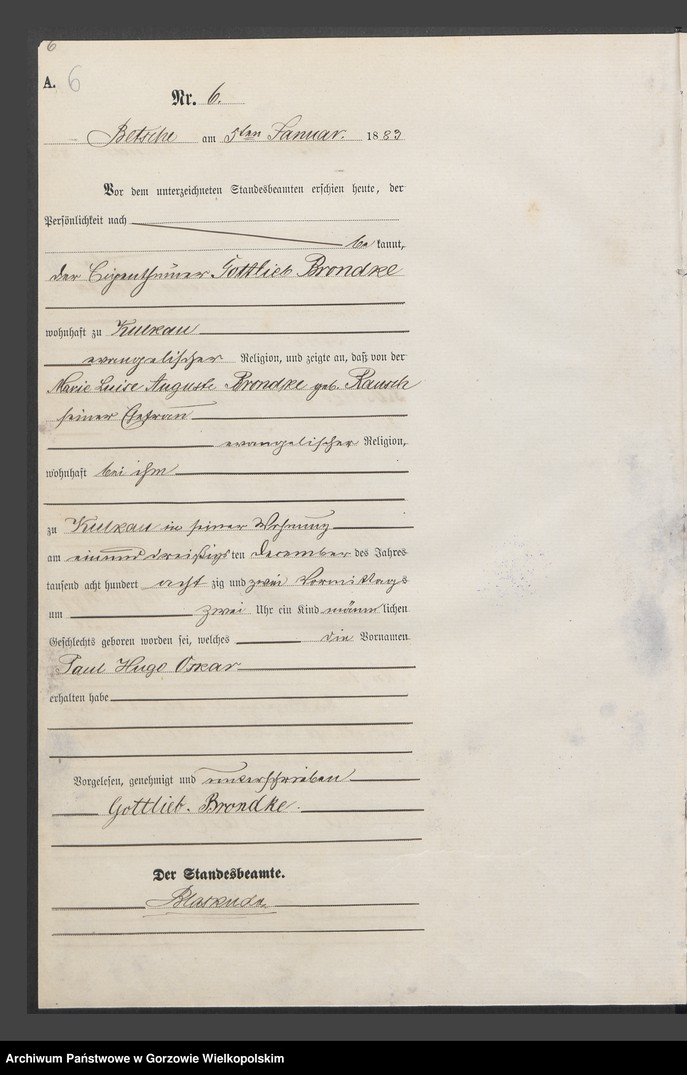 6
A. 6
Nr. 6.
Betsche am 5ten Januar. 1883
Vor dem unterzeichneten Standesbeamten erschien heute, der
Persönlichkeit nach
be kannt,
der Eigenthümer Gottlieb Brondke
wohnhaft zu Kulkau
evangelischer Religion, und zeigte an, daß von der
Marie Luise Auguste Brondke geb. Rausch
seiner Ehefrau
evangelischer Religion,
wohnhaft bei ihm
zu Kulkau in seiner Wohnung
am einund dreißigsten December des Jahres
tausend acht hundert acht zig und zwei Vormittags
um zwei Uhr ein Kind männlichen
Geschlechts geboren worden sei, welches die Vornamen
Paul Hugo Oskar
erhalten habe
Vorgelesen, genehmigt und unterschrieben
Gottlieb. Brondke.
Der Standesbeamte.
Archiwum Państwowe w Gorzowie Wielkopolskim